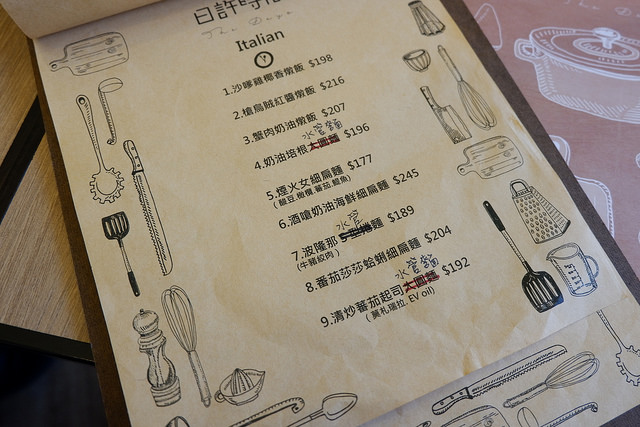 日許時光
The Days
Italian
1.沙嗲雞椰香燉飯 $198
2.槍烏賊紅醬燉飯 $216
3.蟹肉奶油燉飯 $207
水管麵
4.奶油培根大圓麵 $196
5.煙火女細扁麵 $177
(酸豆.橄欖.蕃茄.鯷魚)
6.酒嗆奶油海鮮細扁麵 $245
水管
7.波隆那麵 $189
(牛豬絞肉)
8.番茄莎莎蛤蜊細扁麵 $204
水管麵
9.清炒蕃茄起司大圓麵 $192
(莫札瑞拉. EV oil)